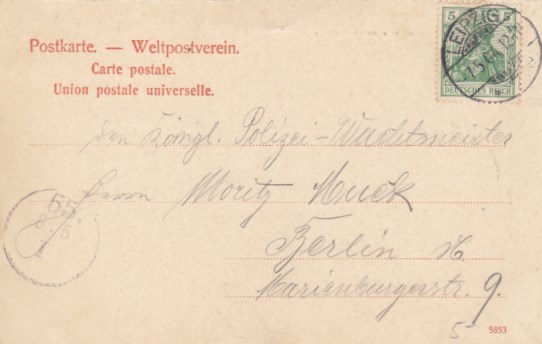 Postkarte. — Weltpostverein.
Carte postale.
Union postale universelle.
5 5
DEUTSCHES REICH
LEIPZIG
Den Königl. Polizei-Wachtmeister
Herrn Moritz Muck
Berlin N.
Marienburgerstr. 9.
5
5853